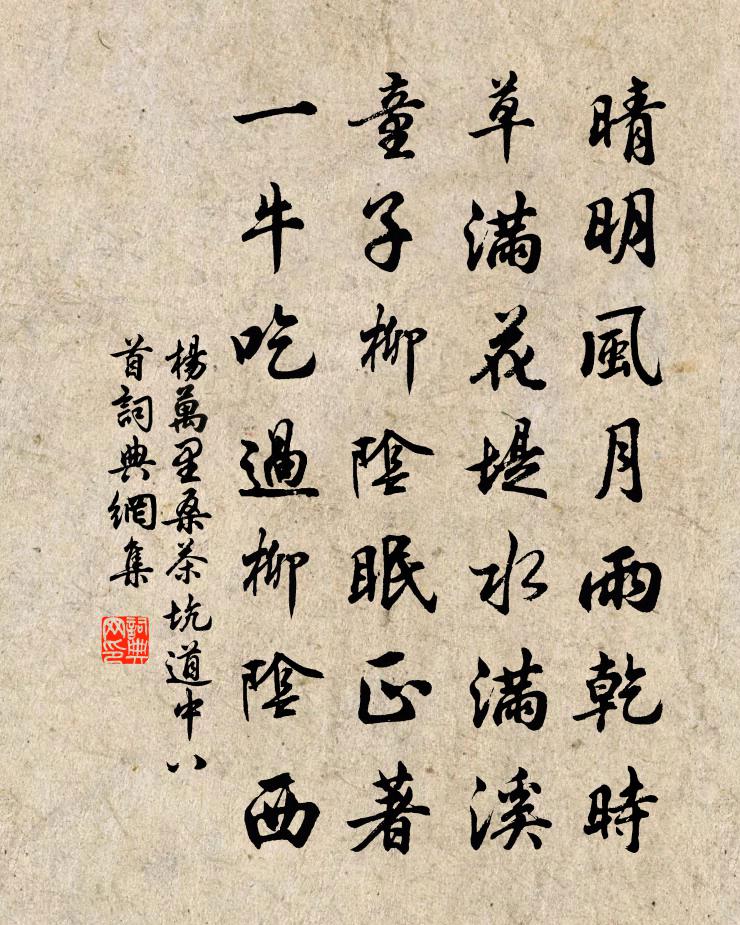 晴明風月雨乾時
草滿花堤水滿溪
童子柳陰眠正著
一牛吃過柳陰西
楊萬里桑茶坑道中八
首詞典網集
詞典
网印